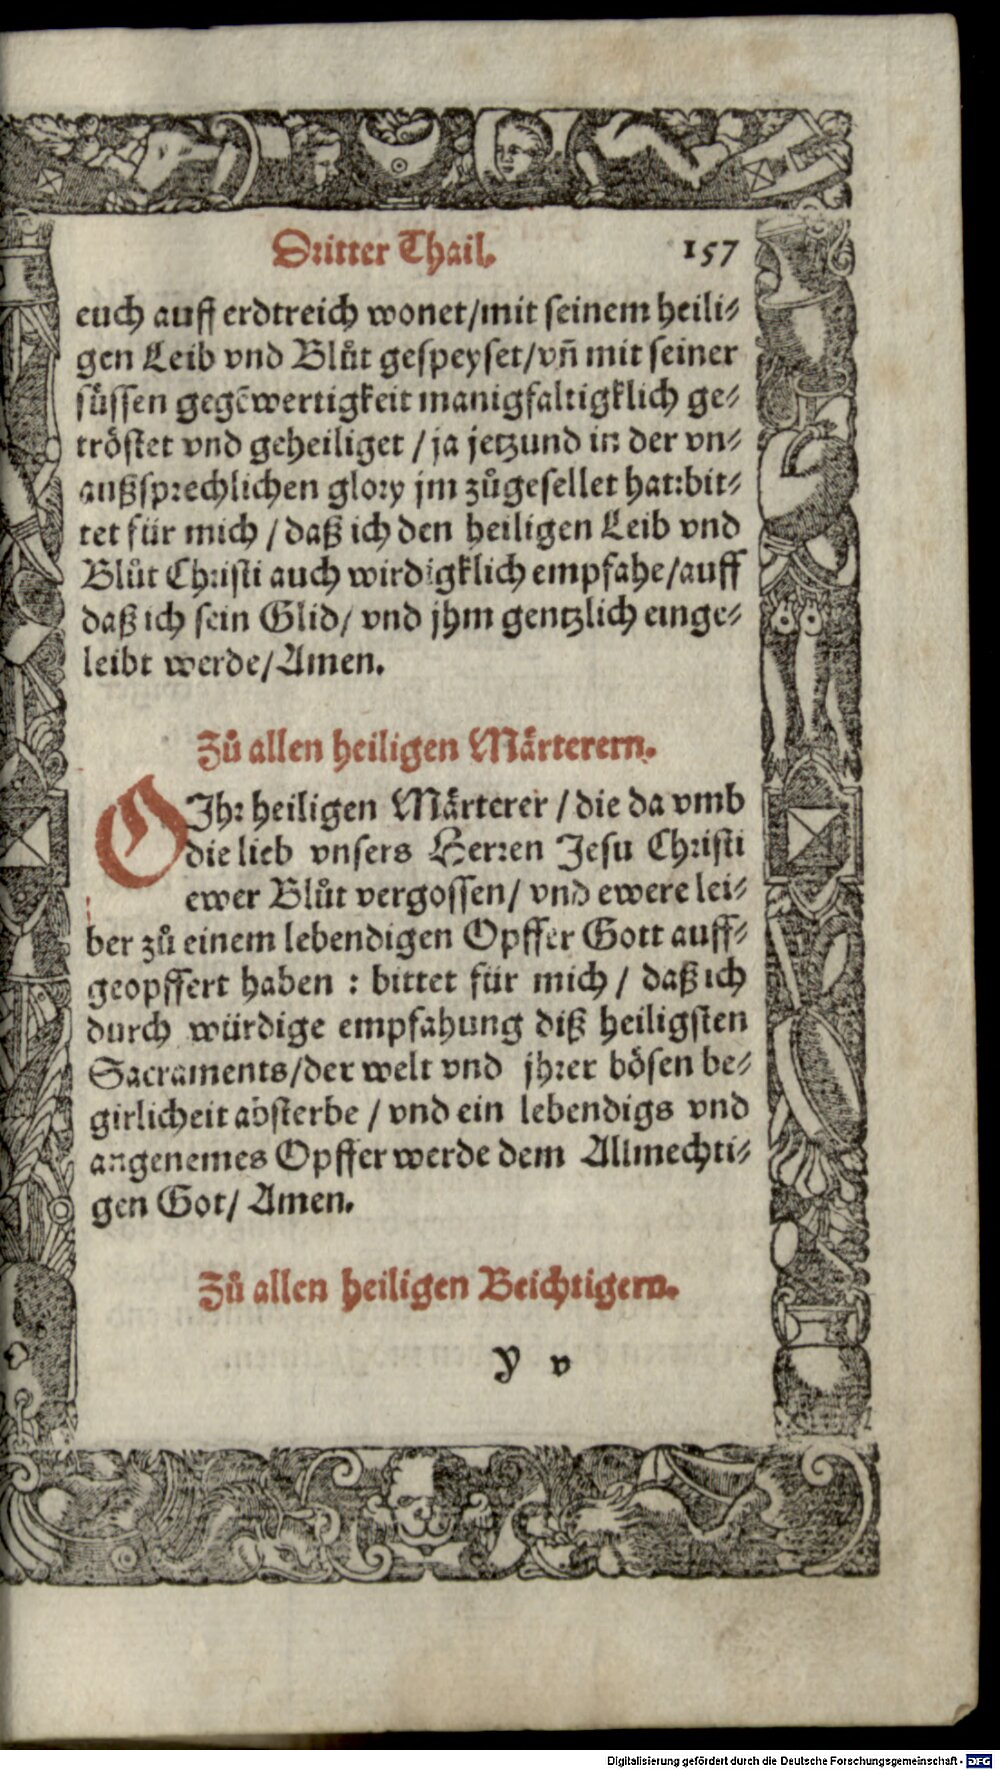 Dritter Thail. 157
euch auff erdtreich wonet/mit seinem heili⸗
gen Leib vnd Blůt gespeyset/vñ mit seiner
süssen gegẽwertigkeit manigfaltigklich ge⸗
tröstet vnd geheiliget / ja jetzund in der vn⸗
außsprechlichen glory jm zůgesellet hat:bit⸗
tet für mich / daß ich den heiligen Leib vnd
Blůt Christi auch wirdigklich empfahe/auff
daß ich sein Glid/ vnd jhm gentzlich einge⸗
leibt werde/Amen.
Zů allen heiligen Mårterern.
O Jhr heiligen Mårterer / die da vmb
die lieb vnsers Herren Jesu Christi
ewer Blůt vergossen/ vnd ewere lei⸗
ber zů einem lebendigen Opffer Gott auff⸗
geopffert haben : bittet für mich / daß ich
durch würdige empfahung diß heiligsten
Sacraments/der welt vnd jhrer bösen be⸗
girlicheit absterbe / vnd ein lebendigs vnd
angenemes Opffer werde dem Allmechti⸗
gen Got/ Amen.
Zů allen heiligen Beichtigern.
Y v
Digitalisierung gefördert durch die Deutsche Forschungsgemeinschaft - DFG